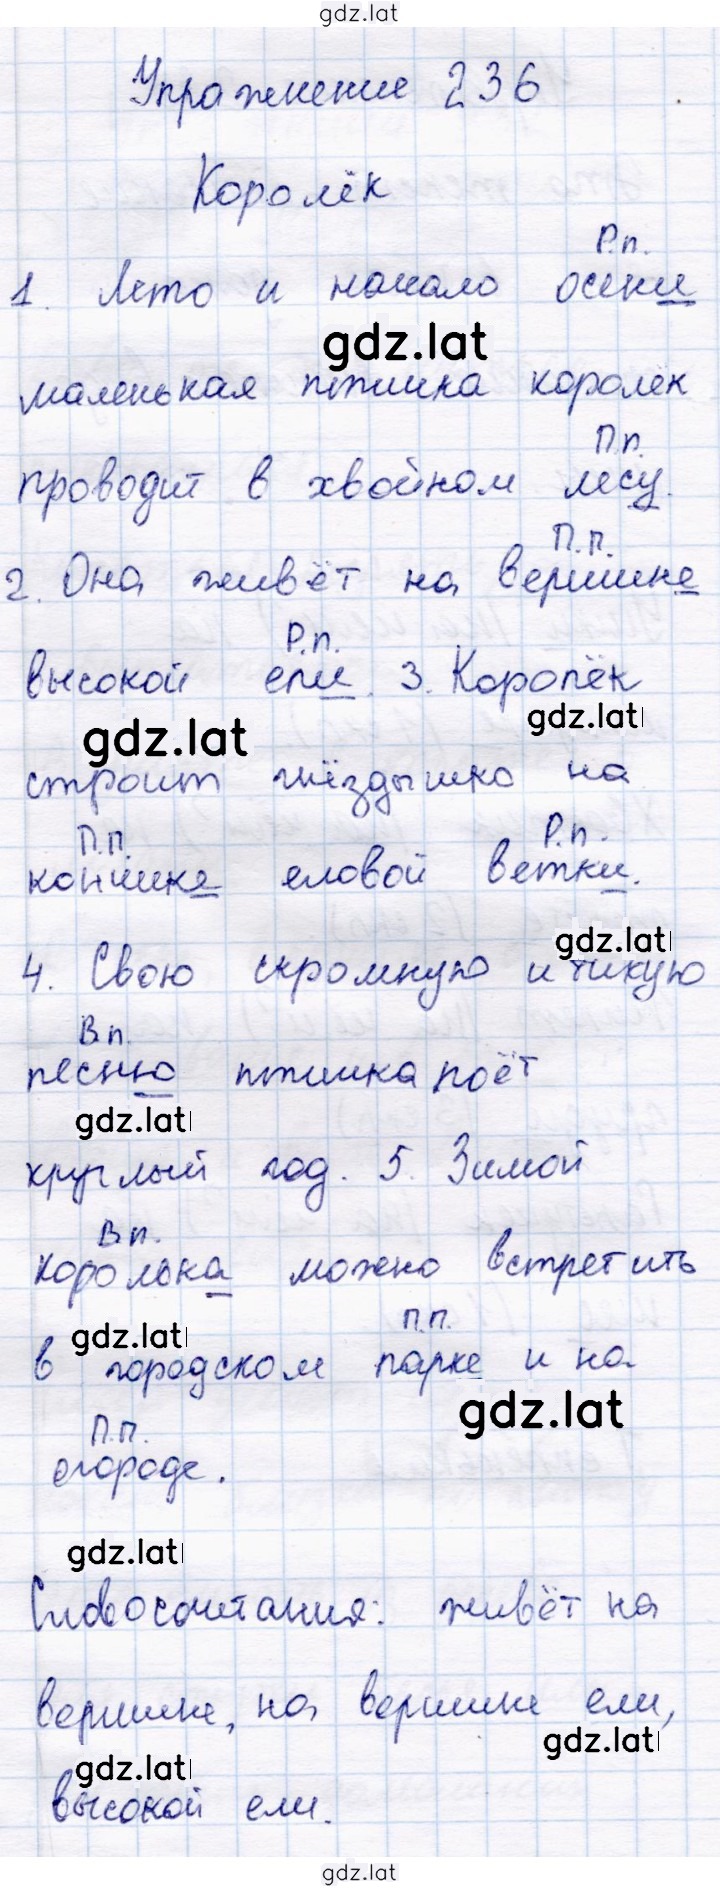 gdz.lat
Упражнение 236
Королёк
Р.п.
1. Лето и начало осени
gdz.lat
маленькая птичка королёк
П.п.
проводит в хвойном лесу.
П.п.
2. Она живёт на вершине
Р.п.
высокой ели. 3. Королёк
gdz.lat
gdz.lat
строит гнёздышко на
П.п. Р.п.
кончике еловой ветки.
gdz.lat
4. Свою скромную и тихую
В.п.
песню птичка поёт
gdz.lat
круглый год. 5. Зимой
В.п.
королька можно встретить
gdz.lat
П.п.
в городском парке и на
gdz.lat
П.п.
огороде.
gdz.lat
Словосочетания: живёт на
вершине, на вершине ели,
gdz.lat
gdz.lat
высокой ели.
gdz.lat